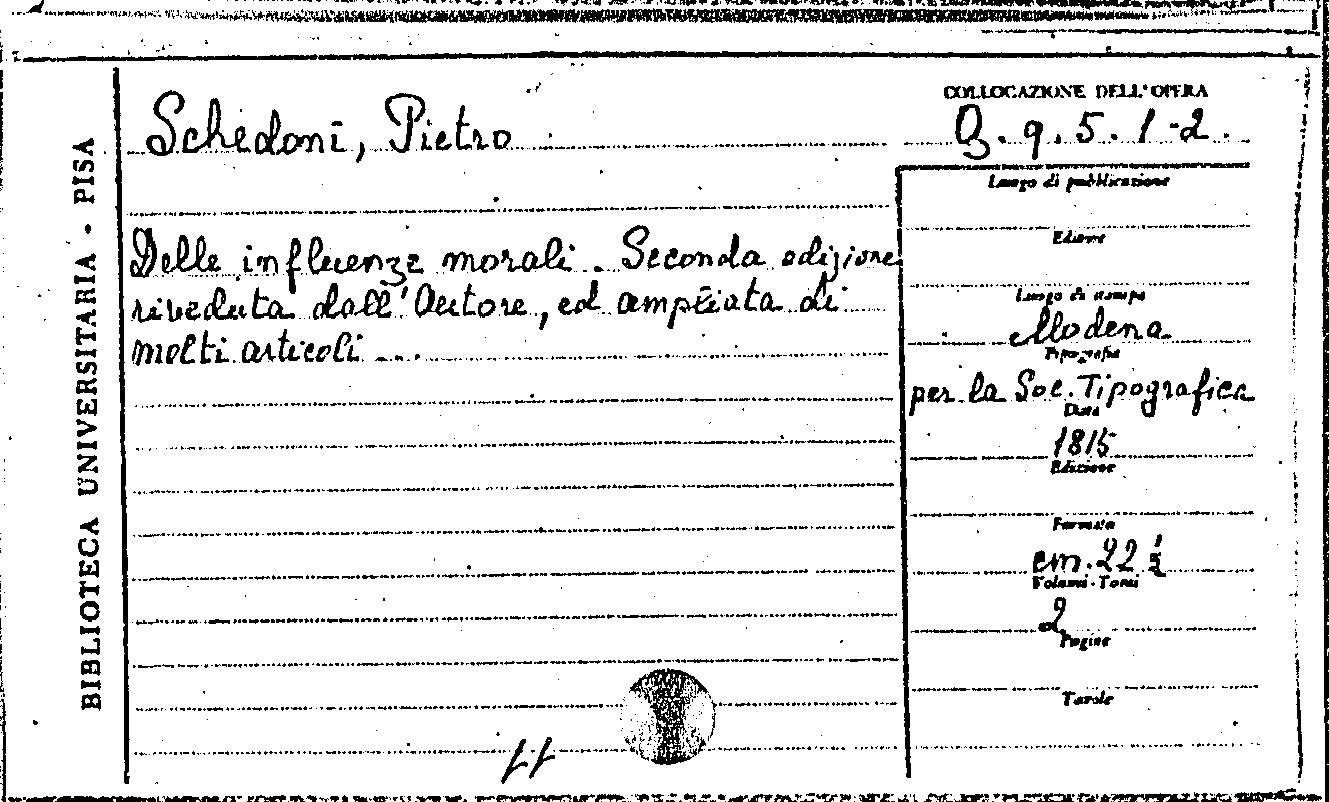 BIBLIOTECA UNIVERSITARIA - PISA
COLLOCAZIONE DELL'OPERA
Schedoni, Pietro
9. 5. 1-2.
Luogo di pubblicazione
Editore
Delle influenze morali. Seconda edizione
riveduta dall'Autore, ed ampliata di
molti articoli ...
Luogo di stampa
Modena
Tipografia
per la Soc. Tipografica
Data
1815
Edizione
Formato
cm. 22 ½
Volumi - Tomi
2
Pagine
Tavole